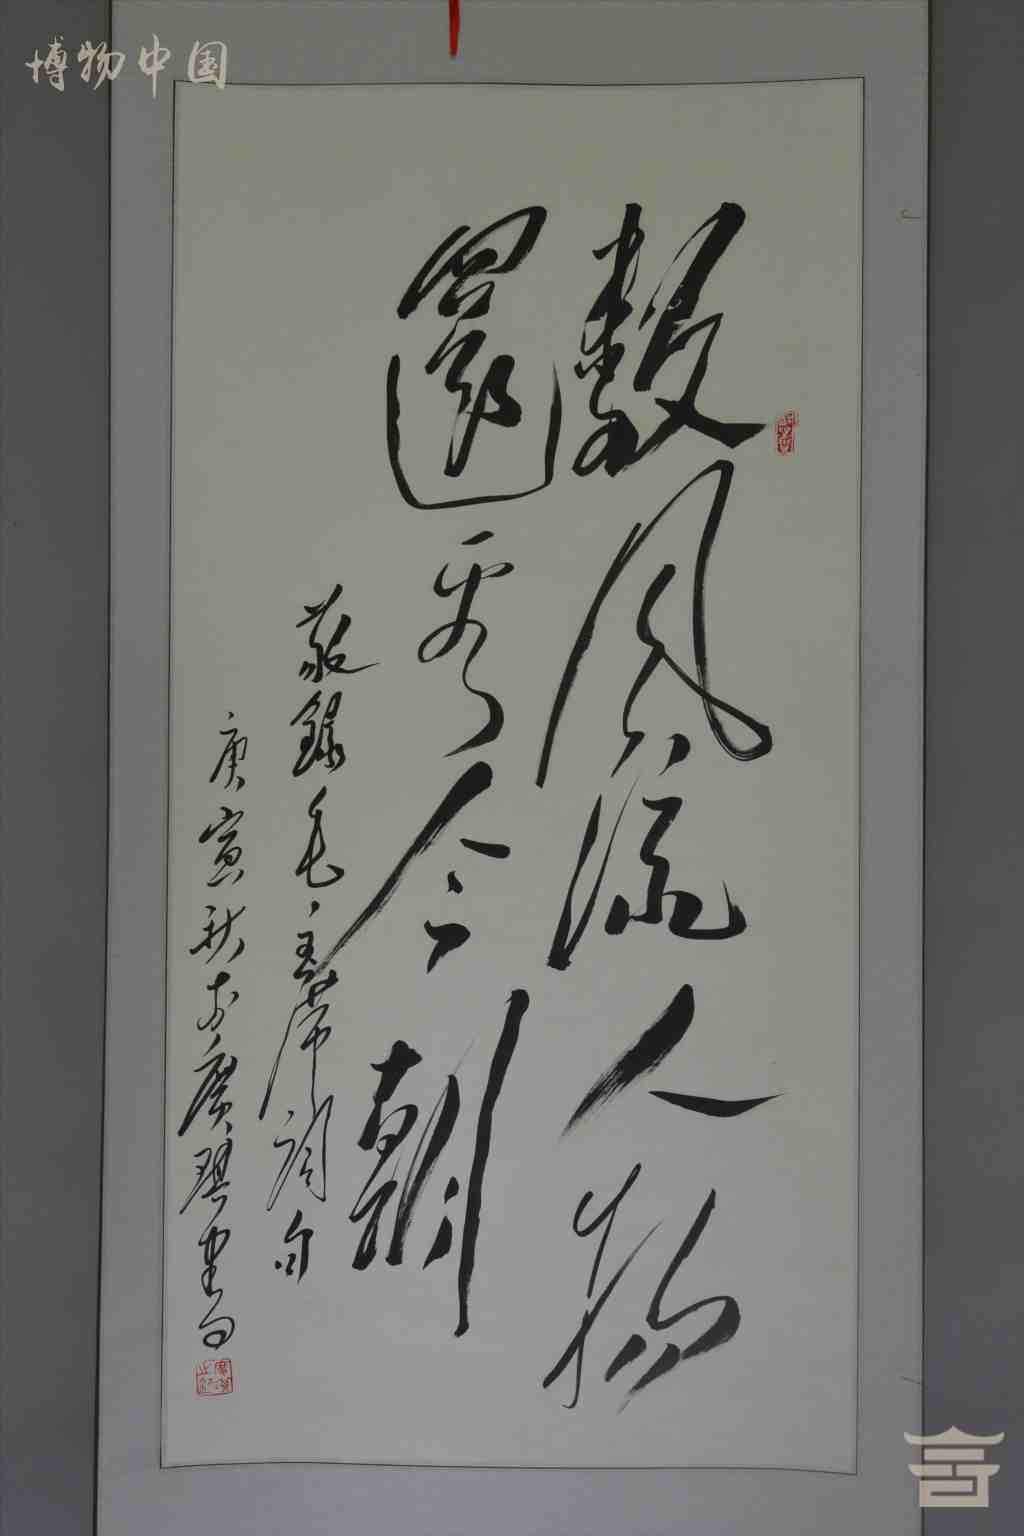 博物中国
數風流人物
還看今朝
敬錄毛主席詞句
庚寅秋於廣琴書